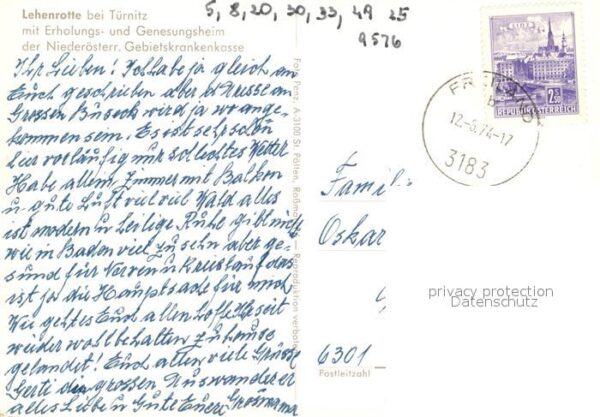 Lehenrotte bei Türnitz
mit Erholungs- und Genesungsheim
der Niederösterr. Gebietskrankenkasse
5, 8, 20, 30, 33, 49 25
9576
Ihr Lieben! Ich habe ja gleich an
Euch geschrieben aber d Adresse an
Grossen Buseck wird ja wo ange-
kommen sein. Es ist sehr schön
hier vorläufig nur schlechtes Wetter
Habe allein Zimmer mit Balkon
u- gute Luft viel viel Wald alles
ist modern u heilige Ruhe gibt nicht
wie in Baden viel zu sehn aber ge-
sund für Nerven u Kreislauf das
ist ja die Hauptsache für mich,
Wie geht es Euch allen hoffe Ihr seit
wieder wohlbehalten zuhause
gelandet! Euch allen viele Grüsse
Gerti den grossen Auswanderer
alles Liebe u Gute Euere Grossmama
Fot. Penz, A-3100 St. Pölten, Roßm — Reproduktion verboten
LINZ
2.50
REPUBLIK ÖSTERREICH
FREILAND
b
12.-6.74-17
3183
Famili
Oskar
6301
Postleitzahl
privacy protection
Datenschutz